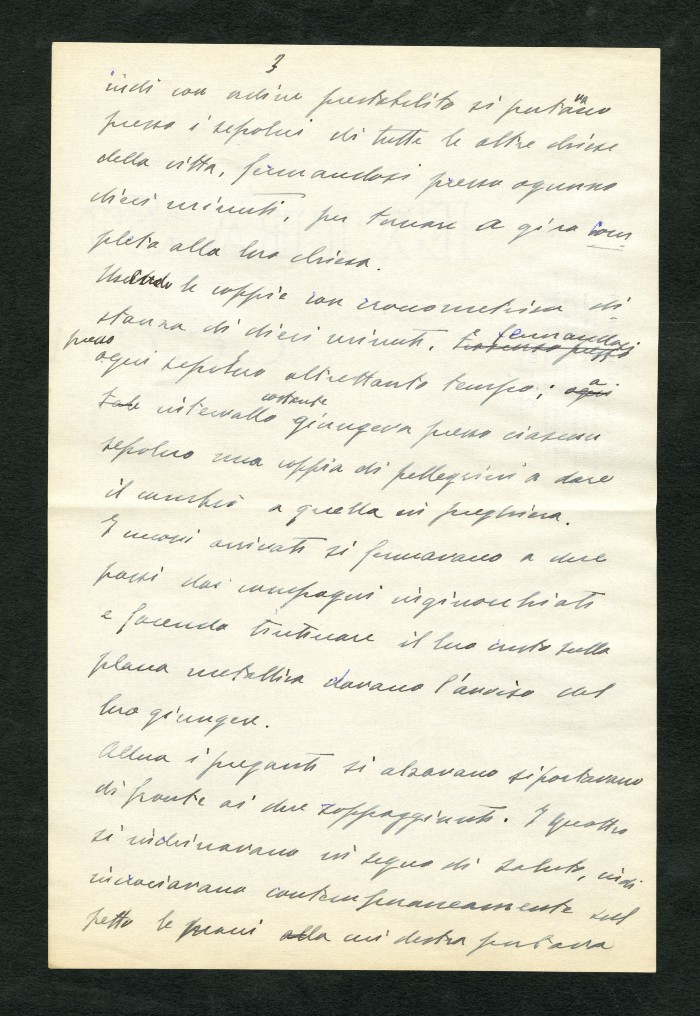 3
indi con ordine prestabilito si portavano
presso i sepolcri di tutte le altre chiese
della città, fermandosi presso ognuno
dieci minuti, per tornare a giro com
pleto alla loro chiesa.
Uscendo le coppie con cronometrica di
stanza di dieci minuti, e fermandosi
presso ogni sepolcro altrettanto tempo; a
tale intervallo costante giungeva presso ciascun
sepolcro una coppia di pellegrini a dare
il cambio a quella in preghiera.
I nuovi arrivati si fermavano a due
passi dai compagni inginocchiati
e facendo tintinnare il loro sulla
placca metallica davano l'avviso del
loro giungere.
Allora i preganti si alzavano si portavano
di fronte ai due sopraggiunti. I quattro
si inchinavano in segno di saluto, indi
incrociavano contemporaneamente sul
petto le mani alla cui destra portava